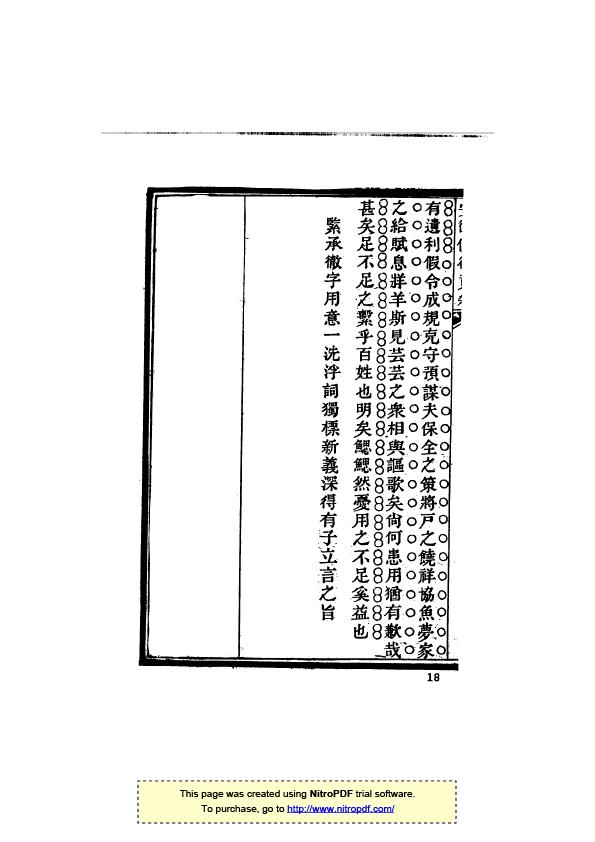 有遺利假令成規克守預謀夫保全之策將戶之饒祥協魚夢家
之給賦息牂羊斯見芸芸之衆相與謳歌矣尙何患用猶有歉哉
甚矣足不足之繫乎百姓也明矣鰓鰓然憂用之不足奚益也
緊承徹字用意一洗浮詞獨標新義深得有子立言之旨
18
This page was created using NitroPDF trial software.
To purchase, go to http://www.nitropdf.com/